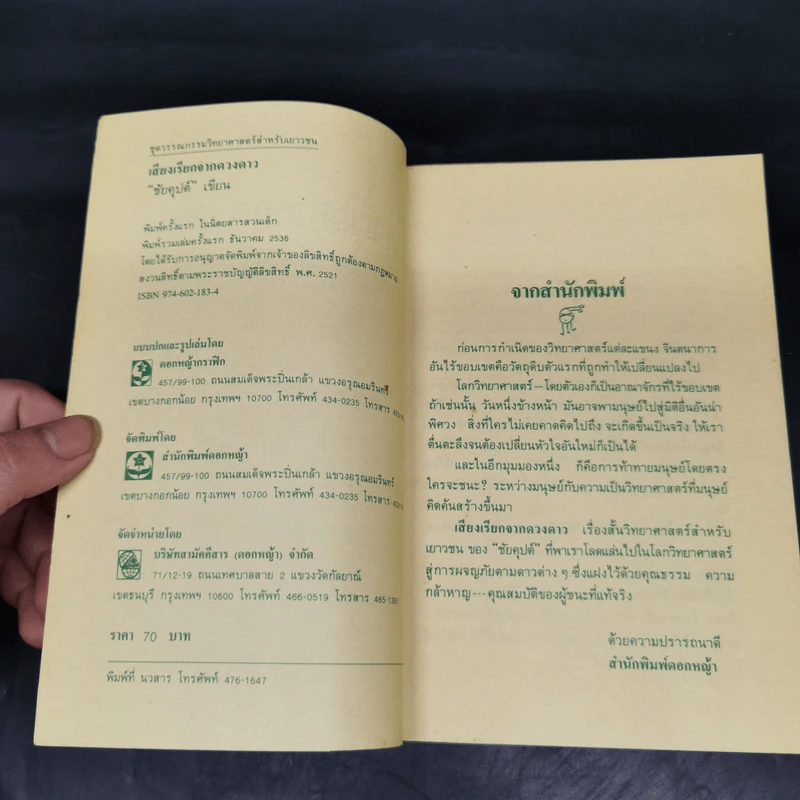 ชุดวรรณกรรมวิทยาศาสตร์สำหรับเยาวชน
เสียงเรียกจากดวงดาว
"ชัยคุปต์" เขียน
พิมพ์ครั้งแรก ในนิตยสารสวนเด็ก
พิมพ์รวมเล่มครั้งแรก ธันวาคม 2536
โดยได้รับการอนุญาตจัดพิมพ์จากเจ้าของลิขสิทธิ์ถูกต้องตามกฎหมาย
สงวนสิทธิ์ตามพระราชบัญญัติลิขสิทธิ์ พ.ศ. 2521
ISBN 974-602-183-4
แบบปกและรูปเล่มโดย
ดอกหญ้ากราฟิก
457/99-100 ถนนสมเด็จพระปิ่นเกล้า แขวงอรุณอมรินทร์
เขตบางกอกน้อย กรุงเทพฯ 10700 โทรศัพท์ 434-0235 โทรสาร
จัดพิมพ์โดย
สำนักพิมพ์ดอกหญ้า
457/99-100 ถนนสมเด็จพระปิ่นเกล้า แขวงอรุณอมรินทร์
เขตบางกอกน้อย กรุงเทพฯ 10700 โทรศัพท์ 434-0235 โทรสาร
จัดจำหน่ายโดย
บริษัทสามัคคีสาร (ดอกหญ้า) จำกัด
71/12-19 ถนนเทศบาลสาย 2 แขวงวัดกัลยาณ์
เขตธนบุรี กรุงเทพฯ 10600 โทรศัพท์ 466-0519 โทรสาร
ราคา 70 บาท
พิมพ์ที่ นวสาร โทรศัพท์ 476-1647
จากสำนักพิมพ์
ก่อนการกำเนิดของวิทยาศาสตร์แต่ละแขนง จินตนาการ
อันไร้ขอบเขตคือวัตถุดิบตัวแรกที่ถูกทำให้เปลี่ยนแปลงไป
โลกวิทยาศาสตร์—โดยตัวเองก็เป็นอาณาจักรที่ไร้ขอบเขต
ถ้าเช่นนั้น วันหนึ่งข้างหน้า มันอาจพามนุษย์ไปสู่มิติอื่นอันน่า
พิศวง สิ่งที่ใครไม่เคยคาดคิดไปถึง จะเกิดขึ้นเป็นจริง ให้เรา
ตื่นตะลึงจนต้องเปลี่ยนหัวใจอันใหม่ก็เป็นได้
และในอีกมุมมองหนึ่ง ก็คือการท้าทายมนุษย์โดยตรง
ใครจะชนะ? ระหว่างมนุษย์กับความเป็นวิทยาศาสตร์ที่มนุษย์
คิดค้นสร้างขึ้นมา
เสียงเรียกจากดวงดาว เรื่องสั้นวิทยาศาสตร์สำหรับ
เยาวชน ของ "ชัยคุปต์" ที่พาเราโลดแล่นไปในโลกวิทยาศาสตร์
สู่การผจญภัยตามดาวต่าง ๆ ซึ่งแฝงไว้ด้วยคุณธรรม ความ
กล้าหาญ---คุณสมบัติของผู้ชนะที่แท้จริง
ด้วยความปรารถนาดี
สำนักพิมพ์ดอกหญ้า